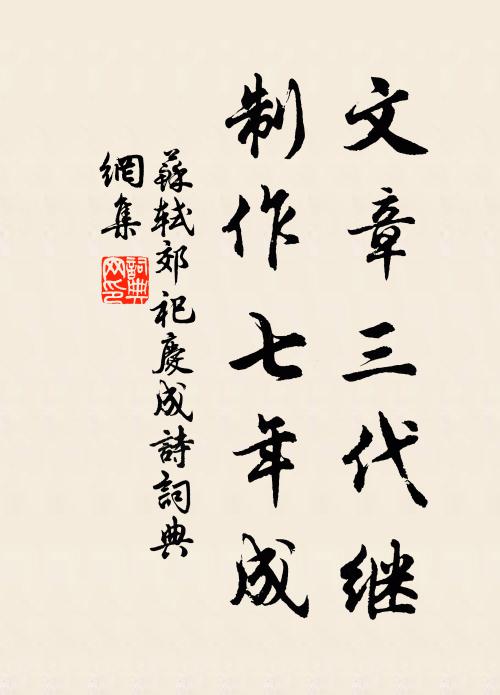 文章三代继
制作七年成
蘇軾郊祀慶成詩詞典
網集
詞典網印